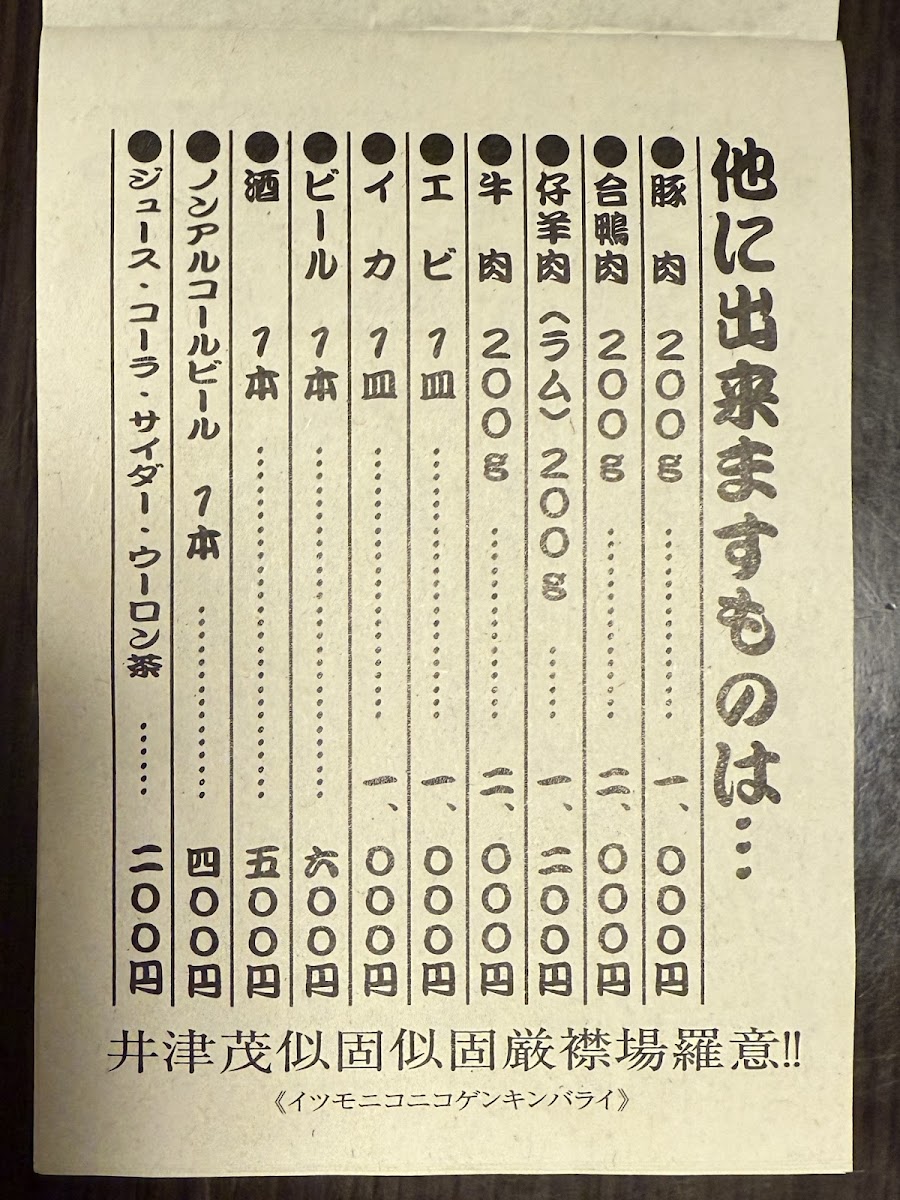 他に出来ますものは…
●豚肉 200g ………… 一、000円
●合鴨肉 200g ………… 二、000円
●仔羊肉（ラム）200g …… 一、二00円
●牛肉 200g ………… 二、000円
●エビ 1皿 ………… 一、000円
●イカ 1皿 ………… 一、000円
●ビール 1本 ………… 六00円
●酒 1本 ………… 五00円
●ノンアルコールビール 1本 ………… 四00円
●ジュース・コーラ・サイダー・ウーロン茶 …… 二00円
井津茂似固似固厳襟場羅意!!
《イツモニコニコゲンキンバライ》